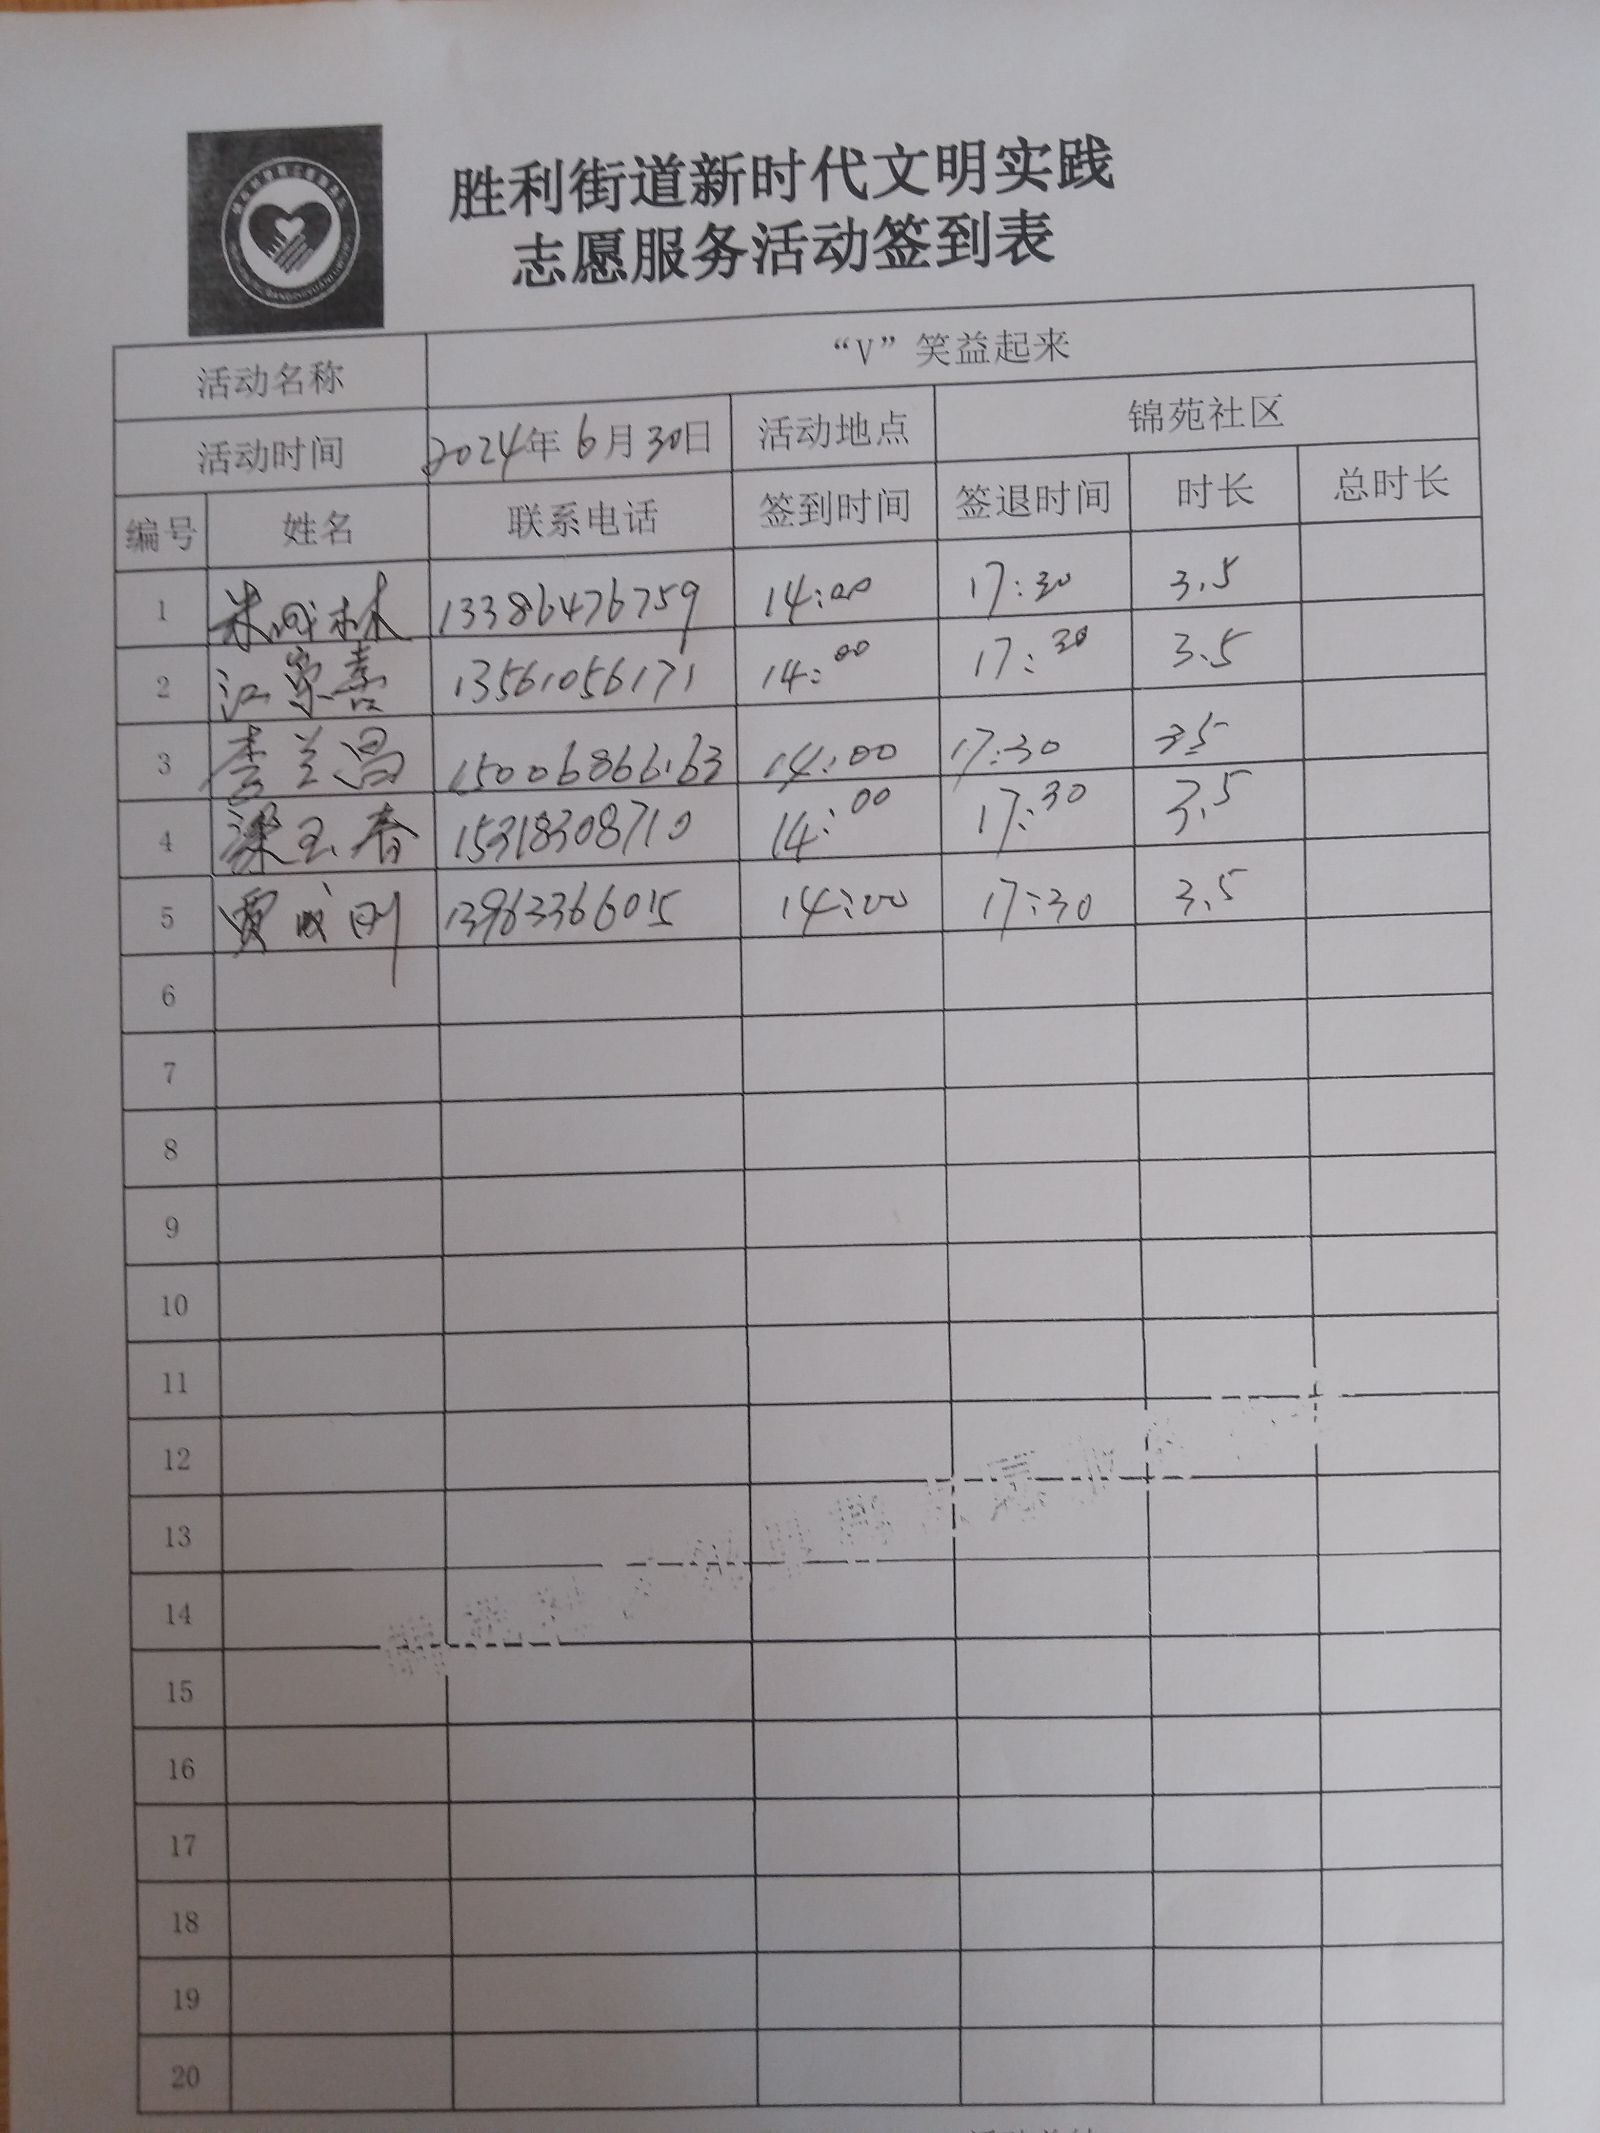 胜利街道新时代文明实践
志愿服务活动签到表
活动名称 “V”笑益起来
活动时间 2024年6月30日 活动地点 锦苑社区
编号 姓名 联系电话 签到时间 签退时间 时长 总时长
1 13386476759 14:00 17:30 3.5
2 江崇喜 13561056171 14:00 17:30 3.5
3 李兰昌 15006866163 14:00 17:30 3.5
4 梁玉春 15318308710 14:00 17:30 3.5
5 贾成刚 13963366015 14:00 17:30 3.5
6
7
8
9
10
11
12
13
14
15
16
17
18
19
20